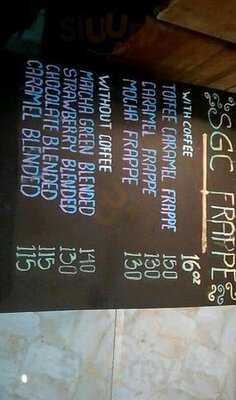 SGC FRAPPE
WITH COFFEE 16oz
TOFFEE CARAMEL FRAPPE 150
CARAMEL FRAPPE 130
MOCHA FRAPPE 130
WITHOUT COFFEE
MATCHA GREEN BLENDED 140
STRAWBERRY BLENDED 130
CHOCOLATE BLENDED 115
CARAMEL BLENDED 115